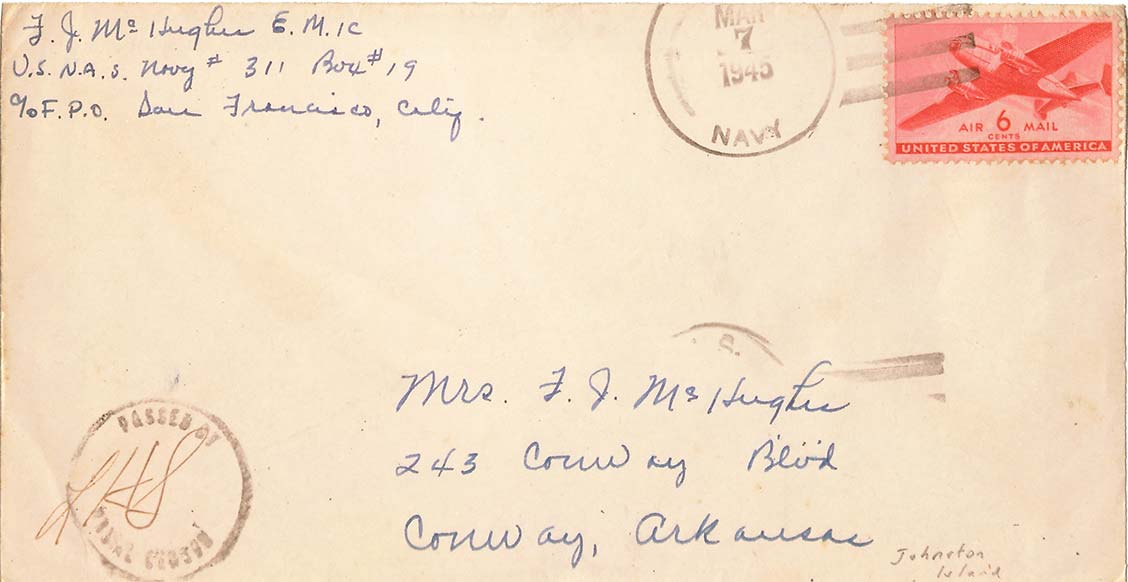 F. J. McHughes E.M.1c
U.S. N.A.S. Navy # 311 Box #19
c/o F.P.O. San Francisco, Calif.
MAR
7
1945
NAVY
AIR 6 MAIL
CENTS
UNITED STATES OF AMERICA
S.
Mrs. F. J. McHughes
243 Conway Blvd
Conway, Arkansas
PASSED BY
NAVAL CENSOR
Johnston
Island